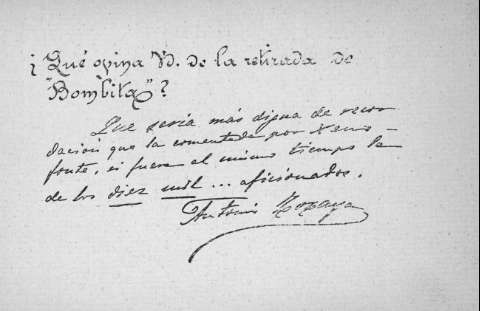 ¿Qué opina Vd. de la retirada de
"Bombita"?
Que sería más digna de recor
dación que la comentada por Xeno-
fonte, si fuera al mismo tiempo la
de los diez mil ... aficionados.
Antonio Zozaya